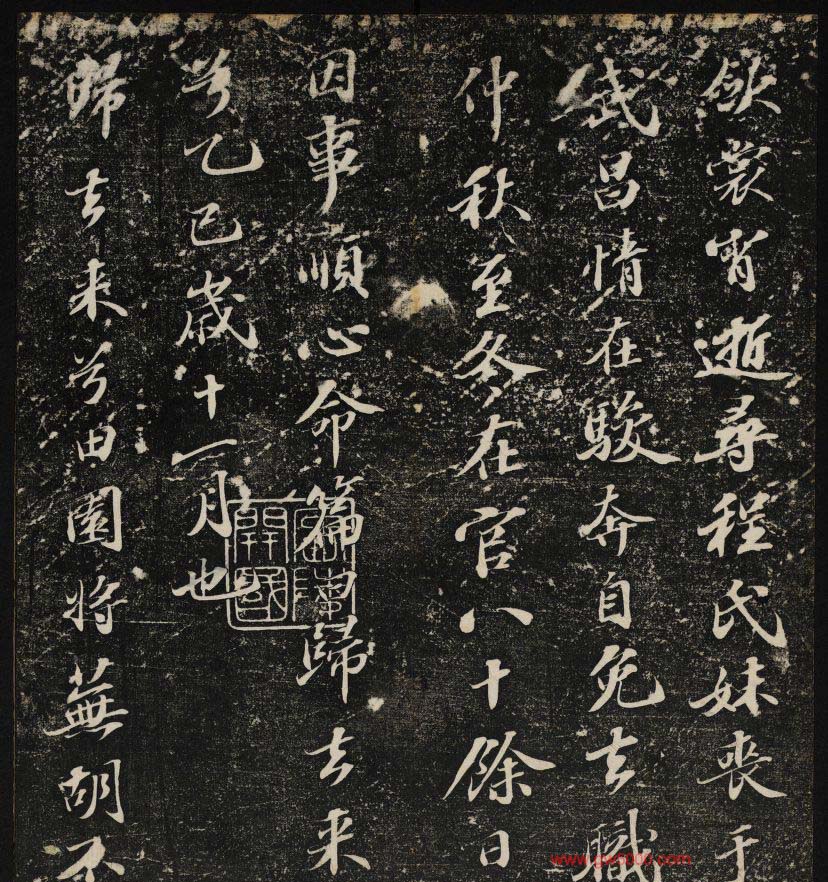 斂裳宵逝尋程氏妹喪于
武昌情在駿奔自免去職
仲秋至冬在官八十餘日
因事順心命篇曰歸去來
兮乙巳歲十一月也
歸去來兮田園將蕪胡不
開國